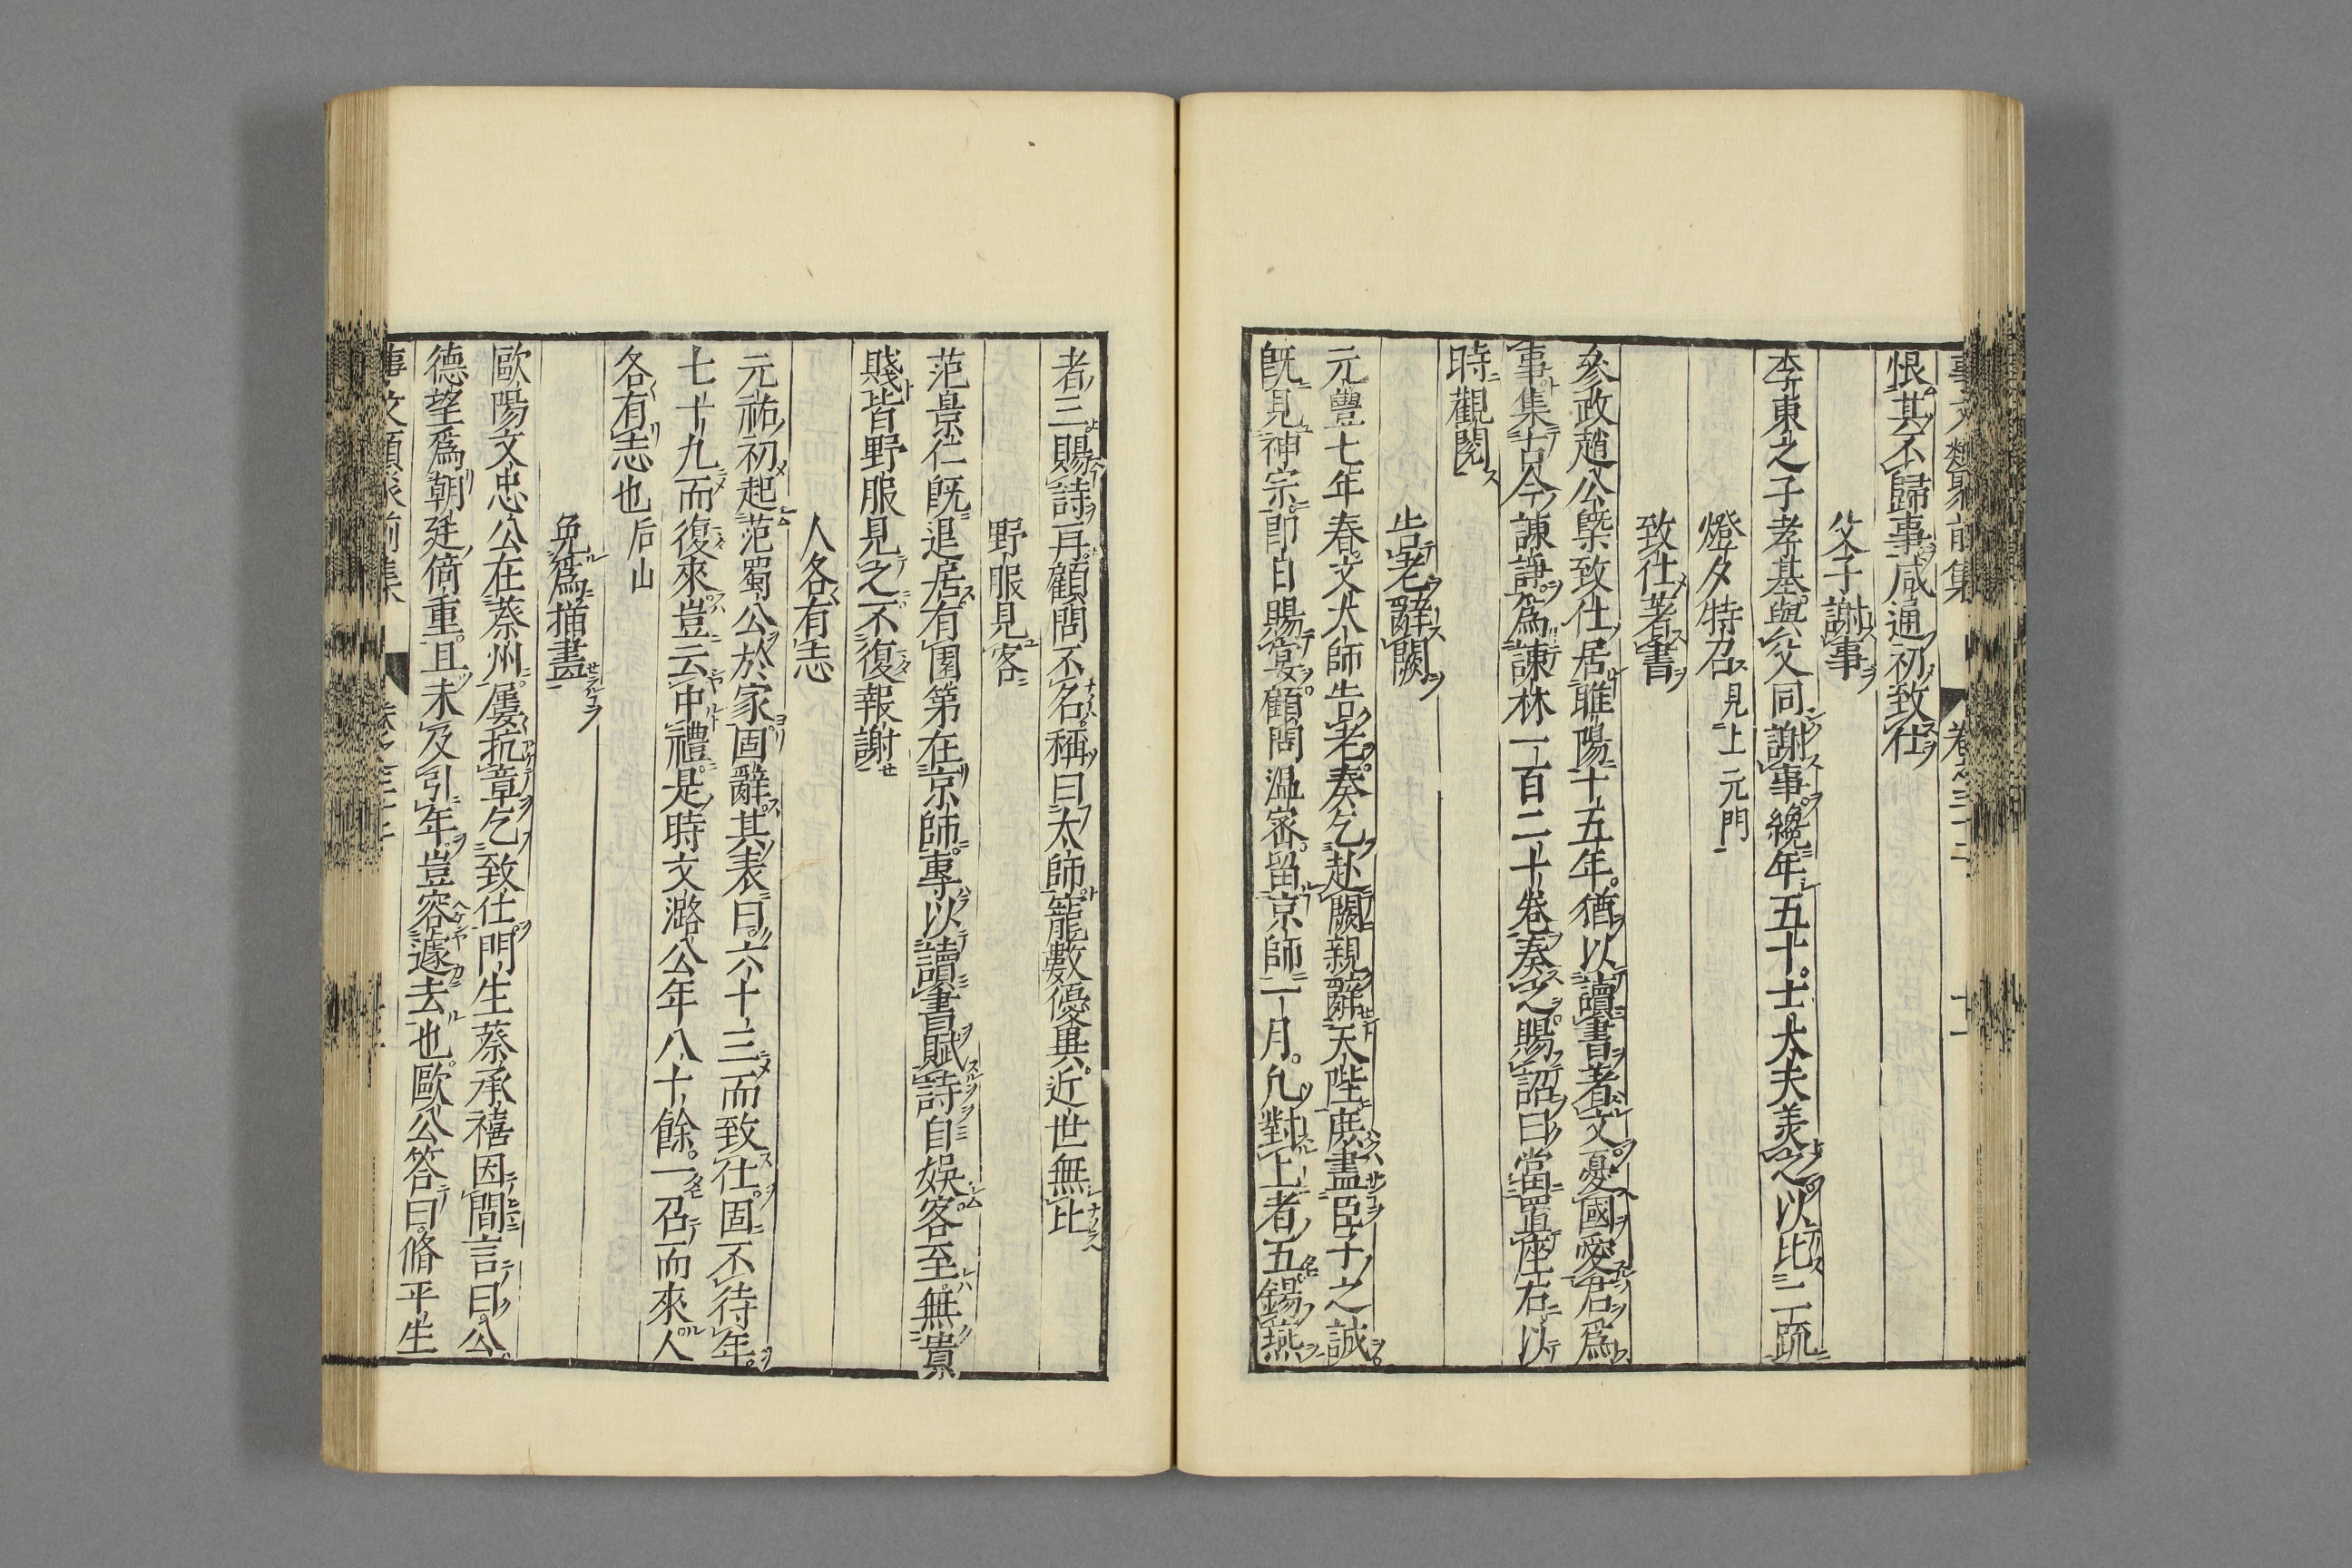 事文類聚前集 卷之三十二 十一
恨其不歸事咸通初致仕
父子謝事
李東之子孝基與父同謝事纔年五十士大夫羨之以比二疏
燈夕特召 見上元門
致仕著書
參政趙公槩致仕居睢陽十五年猶以讀書著文憂國愛君爲
事集古今諫諍爲諫林一百二十卷奏之賜詔曰當置座右以
時觀閱
告老辭闕
元豐七年春文太師告老奏乞赴闕親辭天陛庶盡臣子之誠
既見神宗即日賜宴顧問温密留京師一月凡對上者五錫燕
者三賜詩再顧問不名稱曰太師寵數優異近世無比
野服見客
范景仁既退居有園第在京師專以讀書賦詩自娛客至無貴
賤皆野服見之不復報謝
人各有志
元祐初起范蜀公於家固辭其表曰六十三而致仕固不待年
七十九而復來豈云中禮是時文潞公年八十餘一召而來人
各有志也 后山
免爲描畫
歐陽文忠公在蔡州屢抗章乞致仕門生蔡承禧因間言曰公
德望爲朝廷倚重且未及引年豈容遽去也歐公答曰脩平生